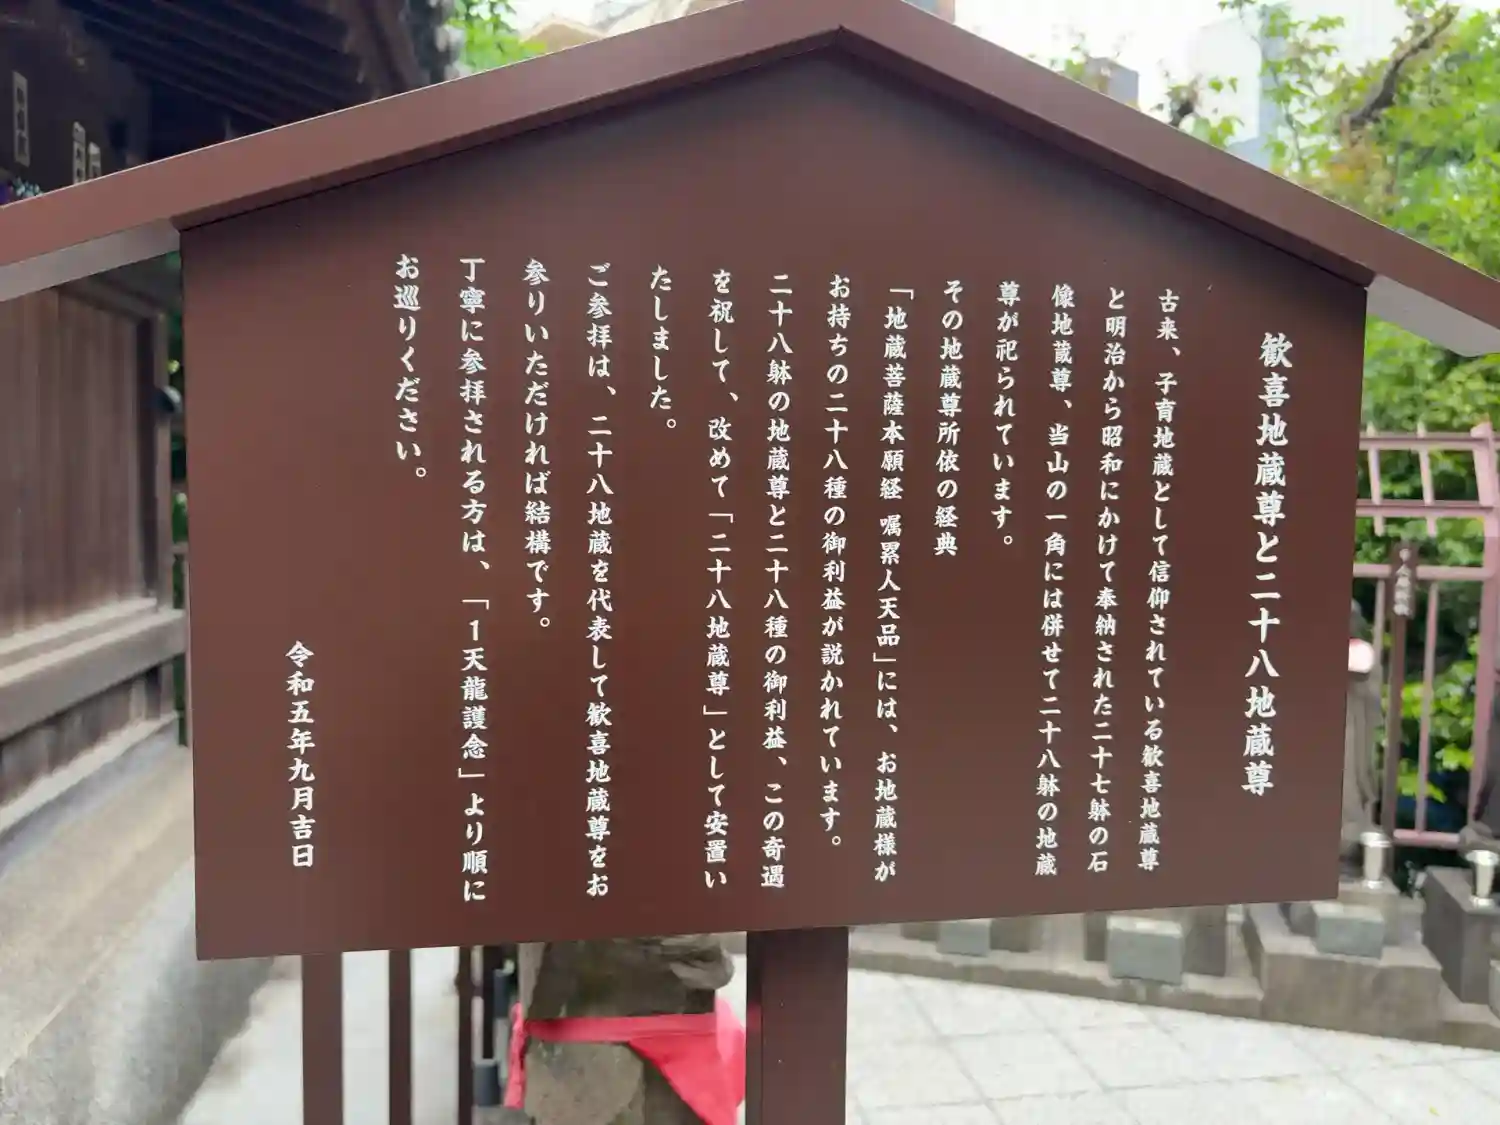 歓喜地蔵尊と二十八地蔵尊
古来、子育地蔵として信仰されている歓喜地蔵尊
と明治から昭和にかけて奉納された二十七躰の石
像地蔵尊、当山の一角には併せて二十八躰の地蔵
尊が祀られています。
その地蔵尊所依の経典
「地蔵菩薩本願経 嘱累人天品」には、お地蔵様が
お持ちの二十八種の御利益が説かれています。
二十八躰の地蔵尊と二十八種の御利益、この奇遇
を祝して、改めて「二十八地蔵尊」として安置い
たしました。
ご参拝は、二十八地蔵を代表して歓喜地蔵尊をお
参りいただければ結構です。
丁寧に参拝される方は、「1天龍護念」より順に
お巡りください。
令和五年九月吉日